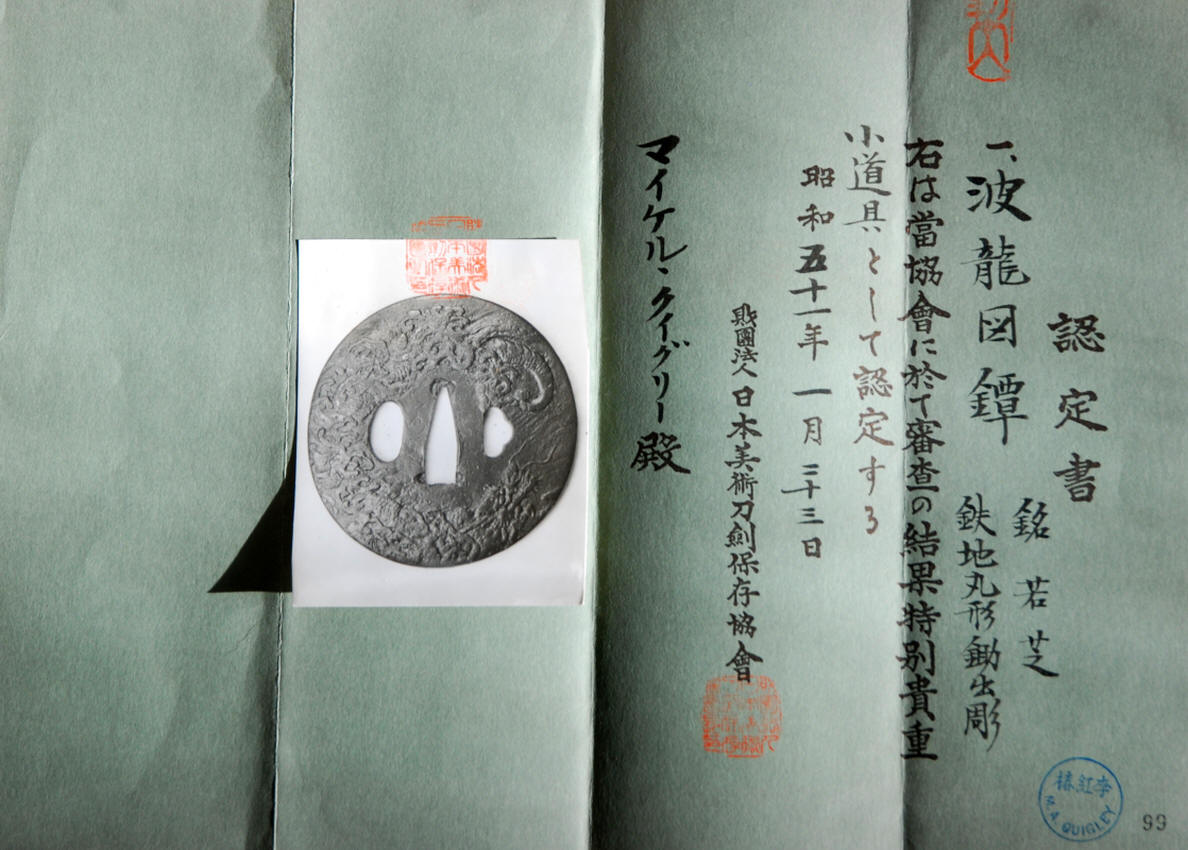 認定書
一、波龍図鐔
銘 若芝
鉄地丸形鋤出彫
右は當協會に於て審査の結果特別貴重
小道具として認定する
昭和五十一年 一月 二十三日
財團法人 日本美術刀劍保存協會
マイケル・クイグリー殿
椿紅李
M.A. QUIGLEY
99